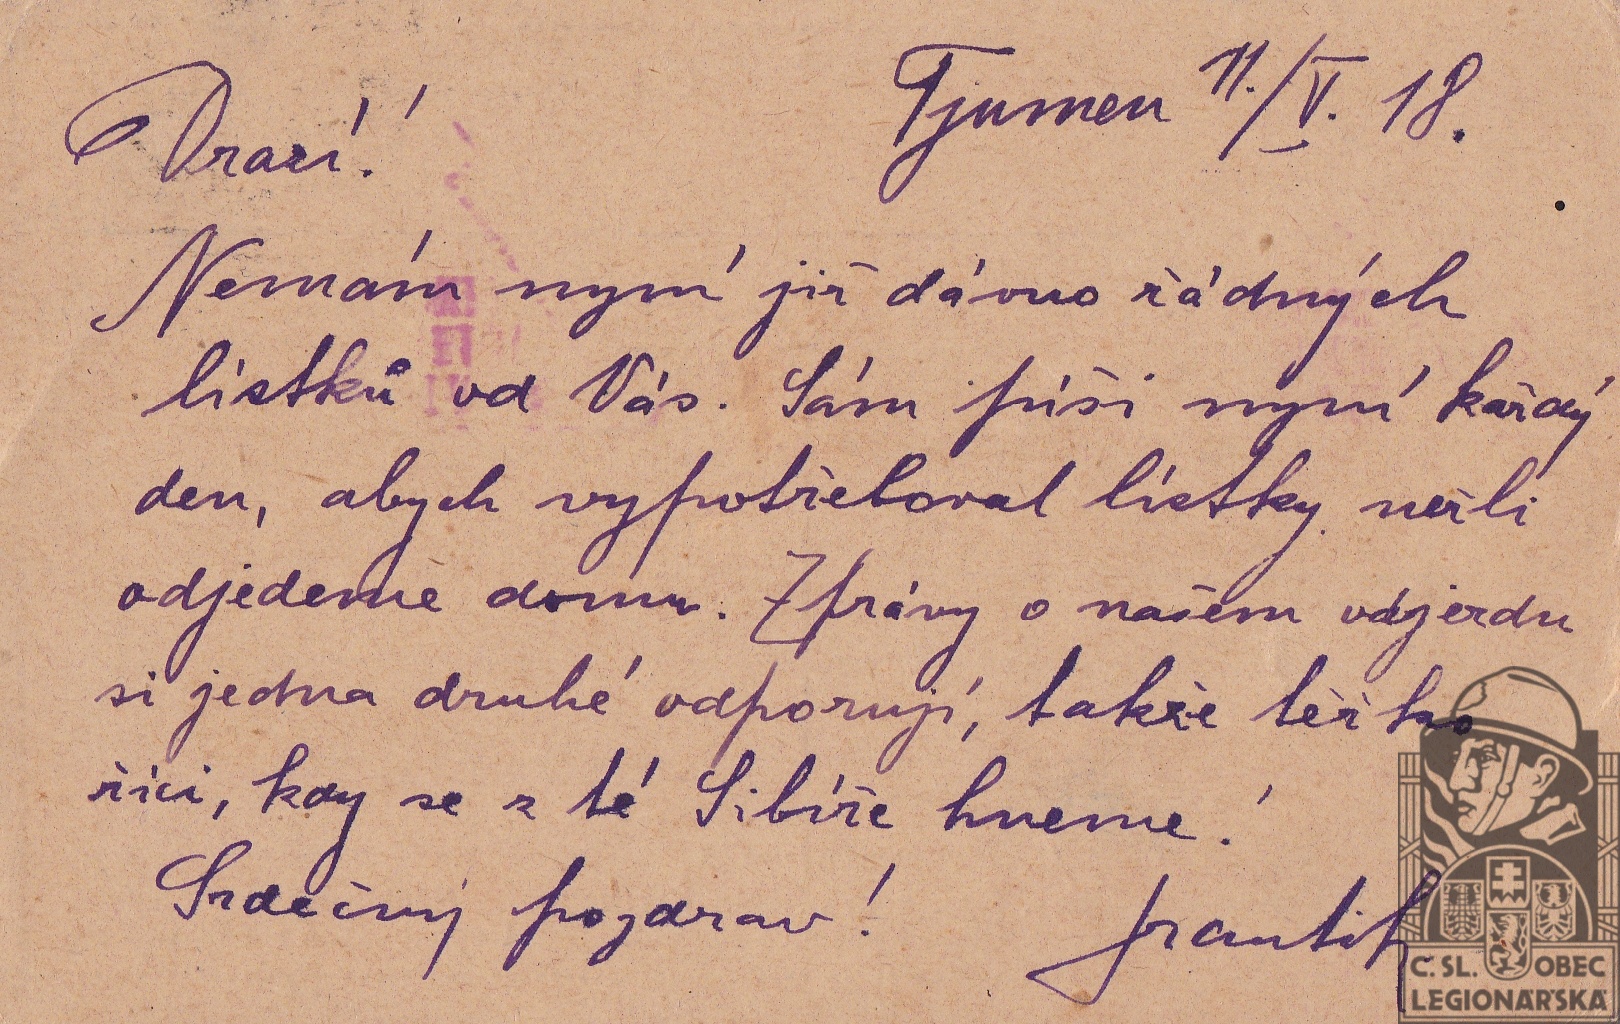 Tjumen 11./V. 18.
Drazí!
Nemám nyní již dávno řádných
lístků od Vás. Sám píši nyní každý
den, abych vypotřeboval lístky nežli
odjedeme domu. Zprávy o našem odjezdu
si jedna druhé odporují, takže těžko
říci, kdy se z té Sibíře hneme!
Srdečný pozdrav! František
Č. SL. OBEC
LEGIONÁŘSKÁ